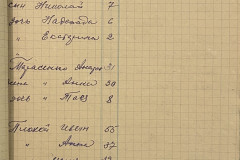 сын Николай 7
дочь Надежда 6
" Екатерина 2
"
Тарасенко Андрей 31
жена " Анна 30
дочь " Таз 8
Плохой Иван 55
" Анна 37